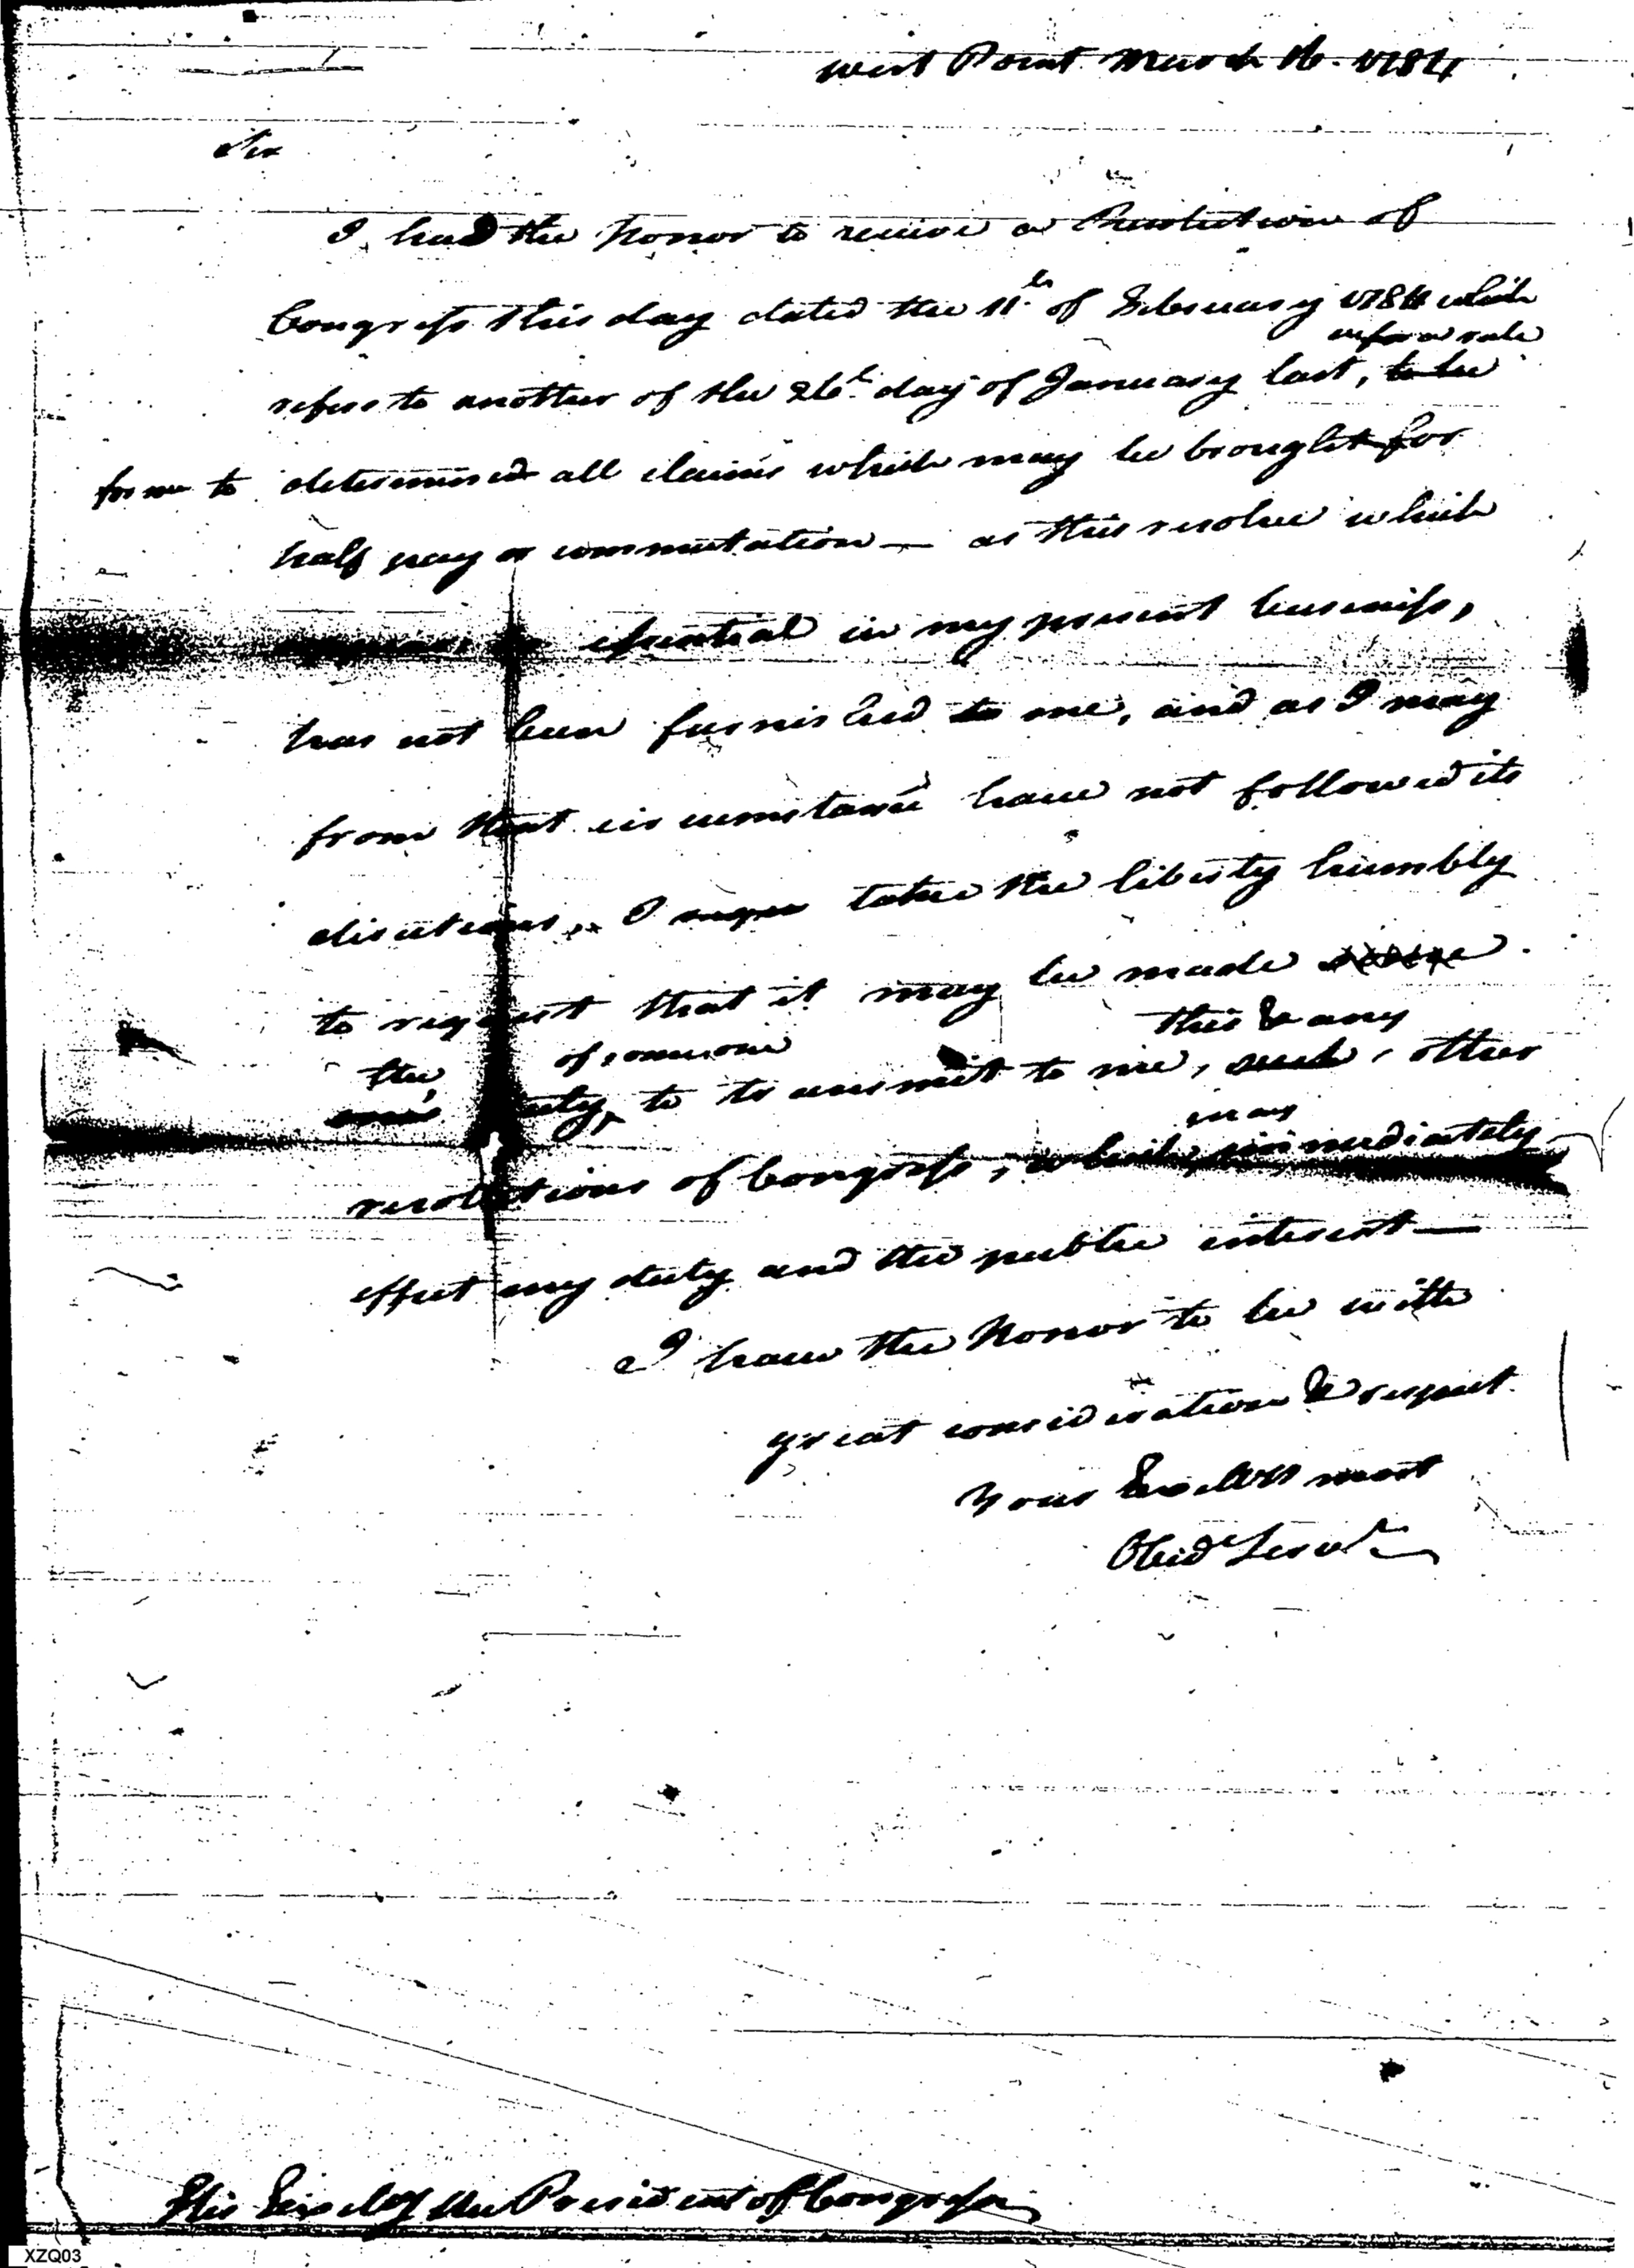 West Point March 16. 1784
Sir
I had the honor to receive a Resolution of
Congress this day dated the 11th of February 1784 which
as for a rule
refers to another of the 26th day of January last, to be
for me to determined all claims which may be brought for
half pay or commutation — as this resolve which
appears essential in my present business,
has not been furnished to me, and as I may
from that circumstance have not followed its
directions, I take the liberty humbly
to request that it may be made
the of some one this & any
duty, to transmit to me, such, other
may
resolutions of Congress, which, immediately
effect my duty and the public interest —
I have the honor to be with
great consideration & respect
Your Excellys most
Obedt Servt
His Excely the President of Congress
XZQ03